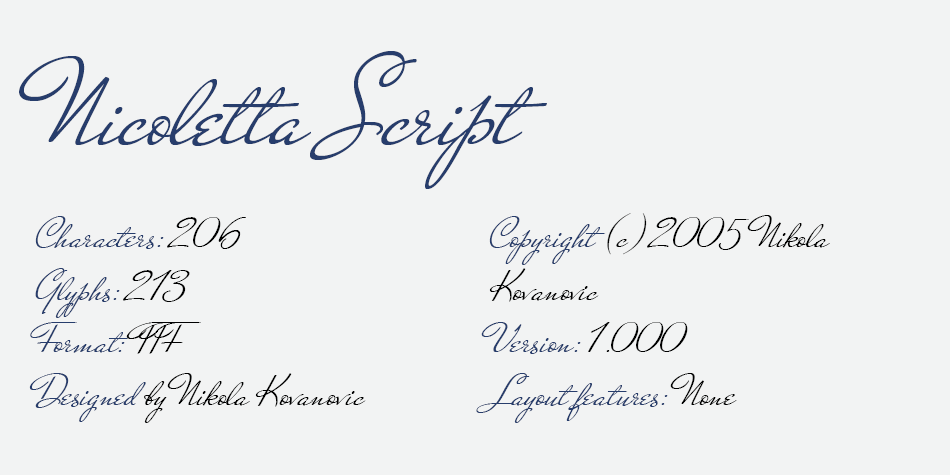 Nicoletta Script
Characters: 206
Glyphs: 213
Format: TTF
Designed by Nikola Kovanovic
Copyright (c) 2005 Nikola
Kovanovic
Version: 1.000
Layout features: None